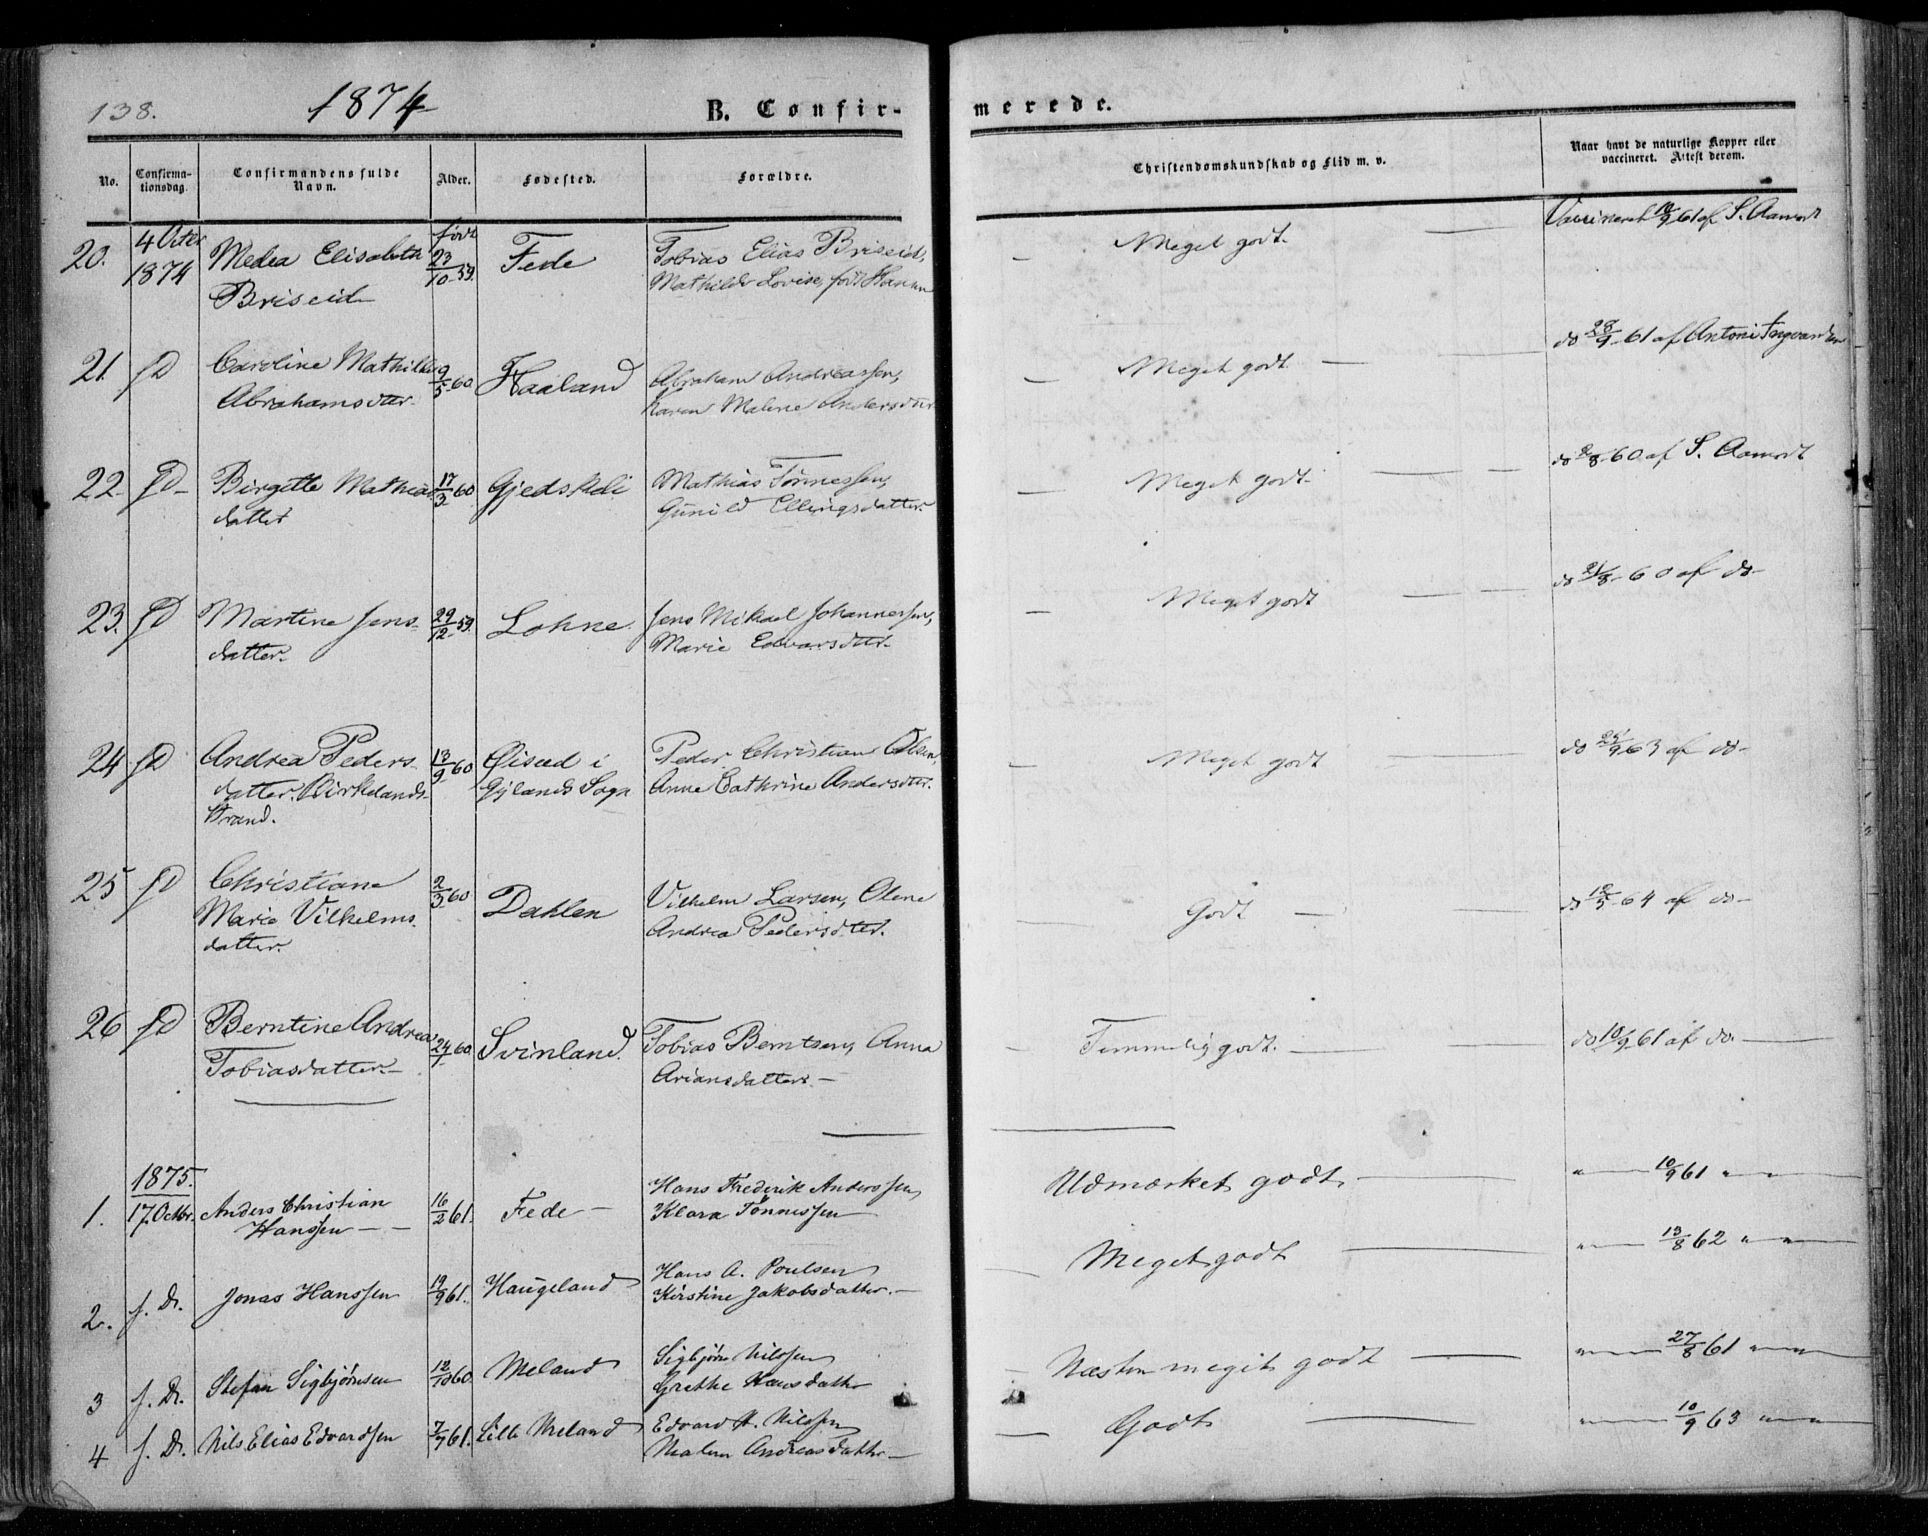 138.
1874
B. Confir-
merede.
No.
Confirma-
tionsdag.
Confirmandens fulde
Navn.
Alder.
Fødested.
Forældre.
Christendomskundskab og Flid m. v.
Naar havt de naturlige Kopper eller
vaccineret. Attest derom.
20. 4 Octer 1874 Medea Elisabeth født 23/10 59. Fede Tobias Elias Briseid,
Briseid Mathilde Lovise, født
— Meget godt. — Vaccineret 18/9 61 af S. Aamodt
21. fD Caroline Mathilde 9/5 60. Haaland Abraham Andreassen,
Abrahamsdtr. Karen Malene Andersdtr
— Meget godt — do 28/9 61 af Antoni Ingvardsen
22. fD Birgitte Mathias 17/3 60 Gjedskli Mathias Tønnessen,
datter Gunild Ellingsdatter
— Meget godt. — do 60 af S. Aamodt
23. fD Martine Jens- 29/12 59. Lohne. Jens Mikael Johannessen,
datter. Marie Edvarsdtr.
— Meget godt — do 60 af do
24 fD Andrea Peders- 13/9 60 Øisæd i Peder Christian Olsen,
datter. Birkelands- Gylands Sogn Anne Cathrine Andersdtr.
Strand.
— Meget godt — do 63 af do
25 fD Christiane 2/3 60 Dahlen Vilhelm Larsen, Olene
Marie Vilhelms- Andrea Pedersdtr.
datter.
— Godt — do 12/5 64 af do
26 fD Berntine Andrea 24/7 60 Svinland. Tobias Berntsen, Anna
Tobiasdatter. Ariansdatter
— Temmelig godt. — do 10/9 61 af do.
1875.
1. 17. Octbr. Anders Christian 16/2 61. Fede Hans Frederik Anderssen,
Hanssen Klara Tønnessen
Udmærket godt — " 10/9 61 "
2. f. D. Jonas Hanssen 19/9 61. Haugeland Hans A. Poulsen
Kirstine Jakobsdatter.
— Meget godt — " 13/8 62 "
3 f. D. Stefan Sigbjørnsen 12/10 60. Meland Sigbjørn Nilssen
Grethe Hansdatter
— Næsten meget godt — " 27/8 61 "
4 f. D. Nils Elias Edvardsen 7/7 61. Lille Meland Edvard N. Nilssen
Malene Andreasdatter
— Godt — " 10/9 63 "